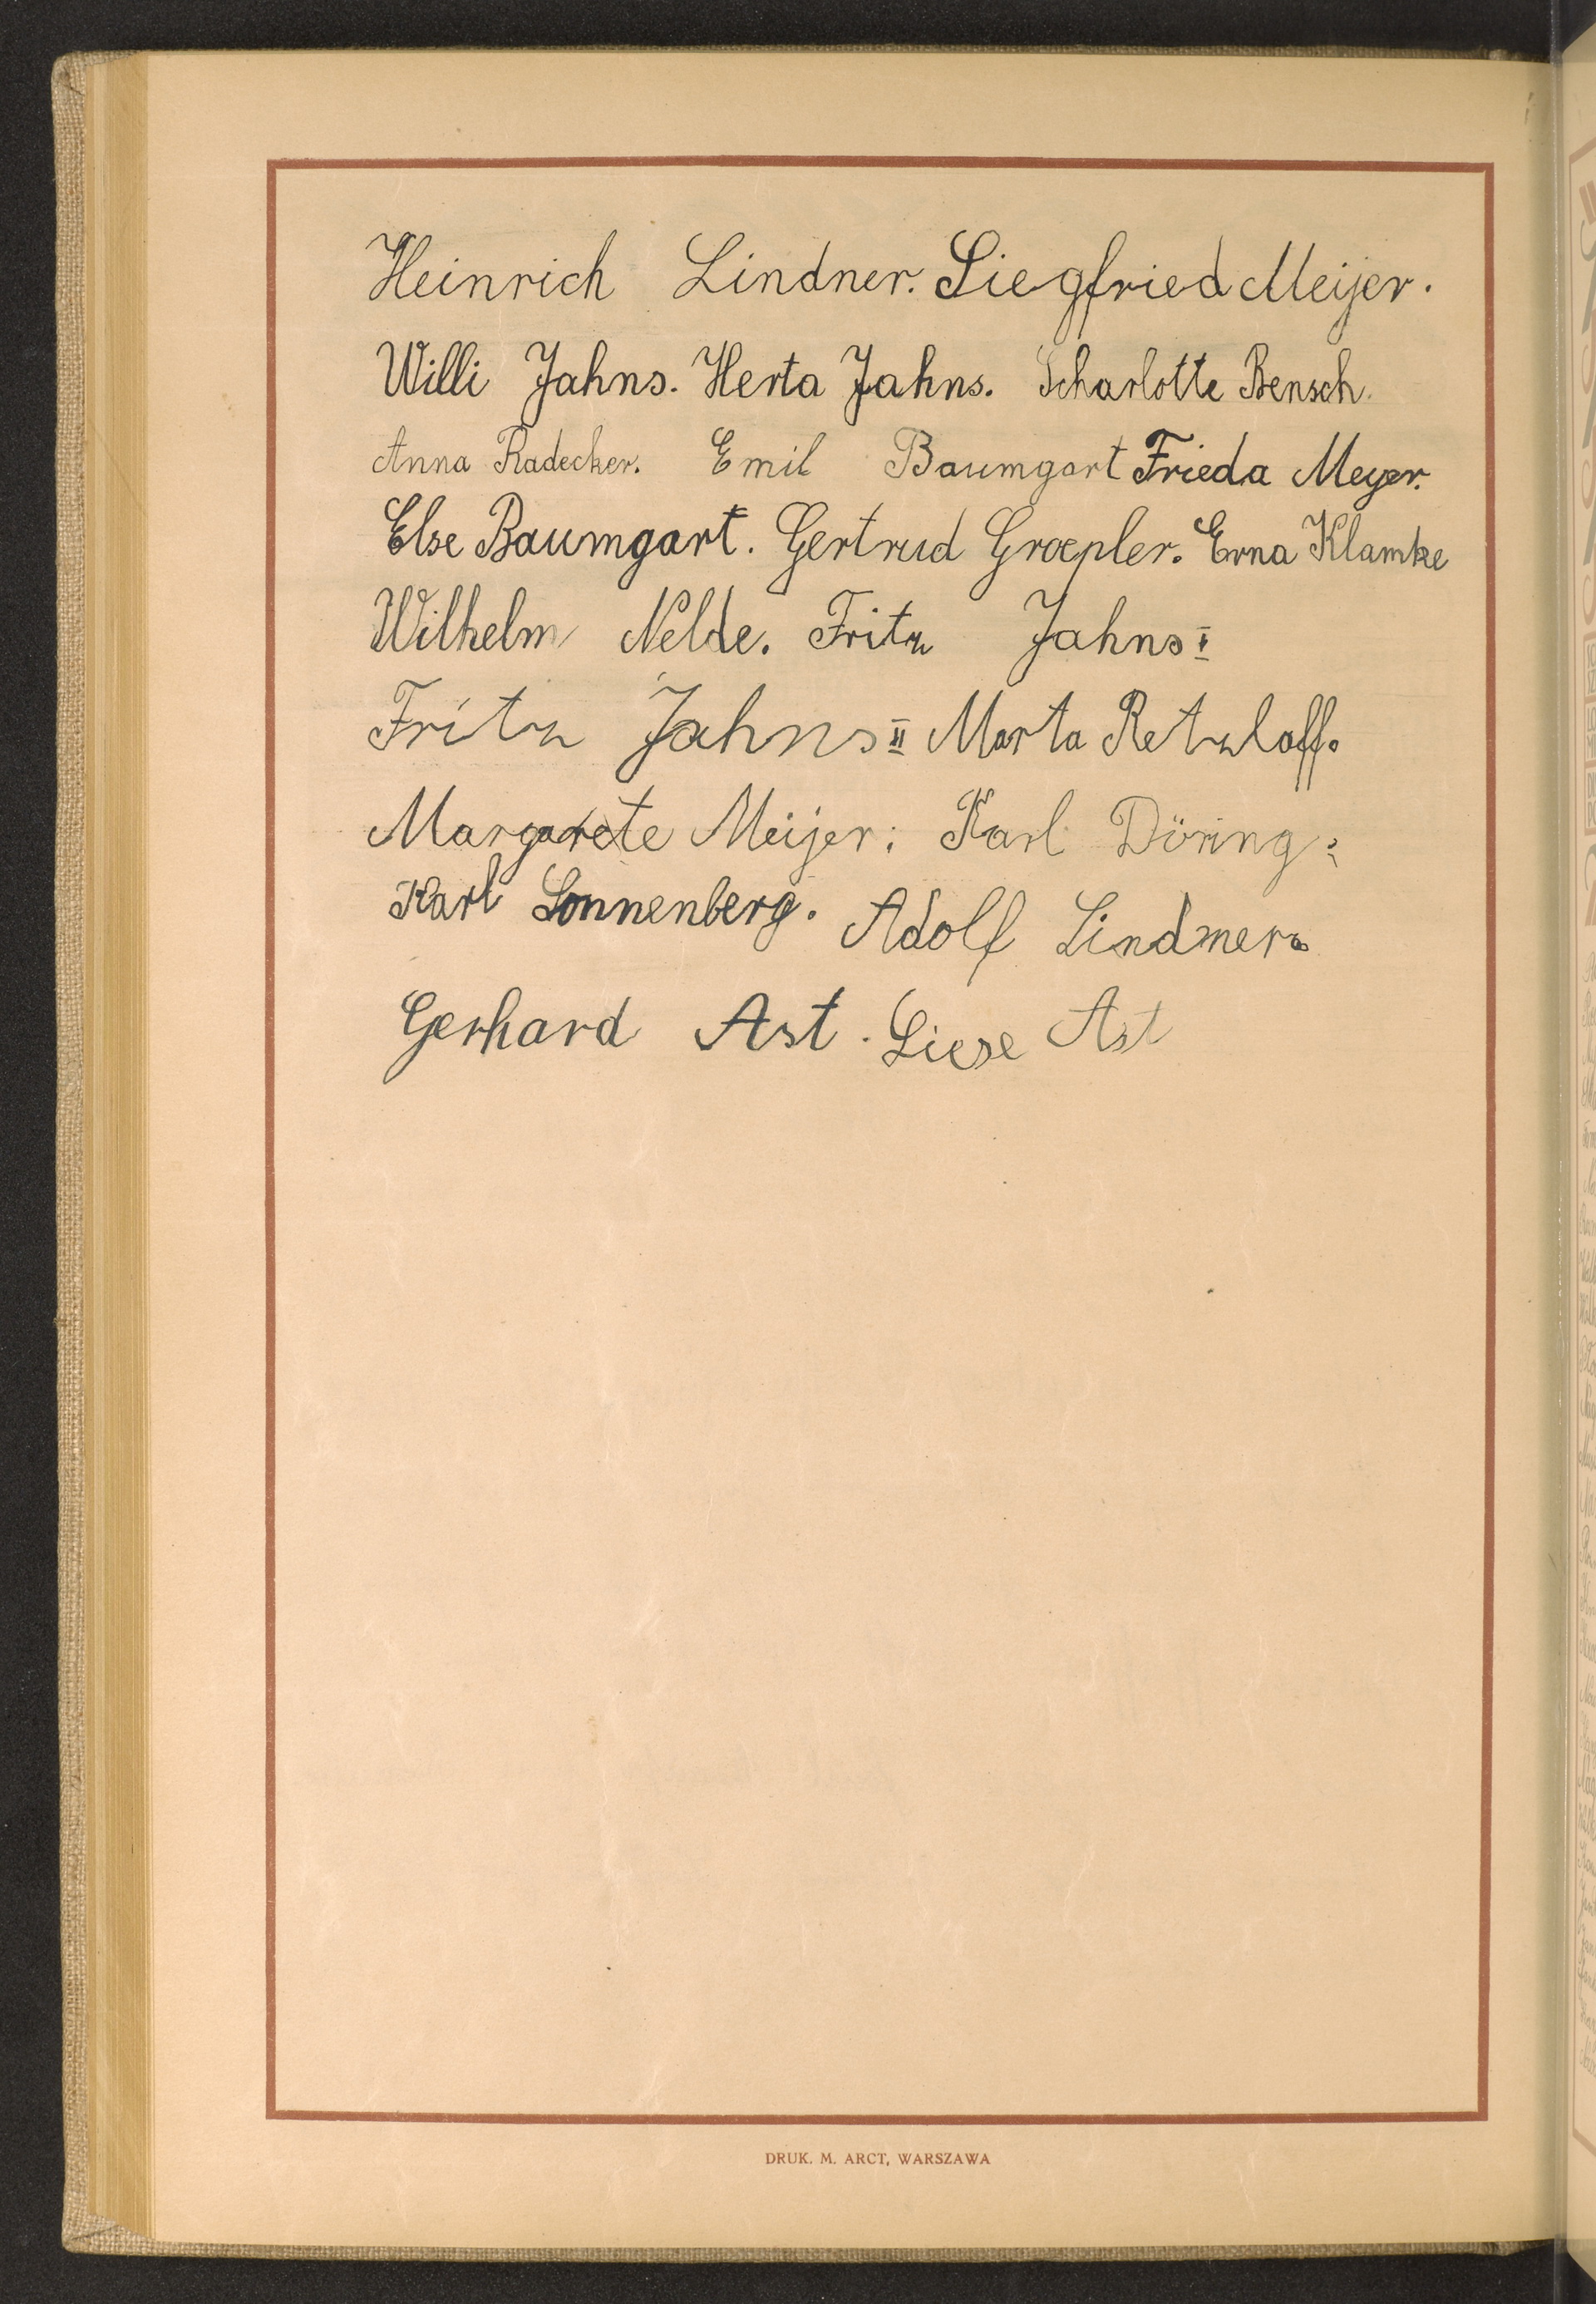 Heinrich Lindner. Siegfried Meijer.
Willi Jahns. Herta Jahns. Scharlotte Bensch.
Anna Radecker. Emil Baumgart Frieda Meyer.
Else Baumgart. Gertrud Groepler. Erna Klamke
Wilhelm Nelde. Fritz Jahns I
Fritz Jahns II Marta Retzlaff.
Margarete Meijer; Karl Döring;
Karl Sonnenberg. Adolf Lindner.
Gerhard Ast. Liese Ast
DRUK. M. ARCT, WARSZAWA